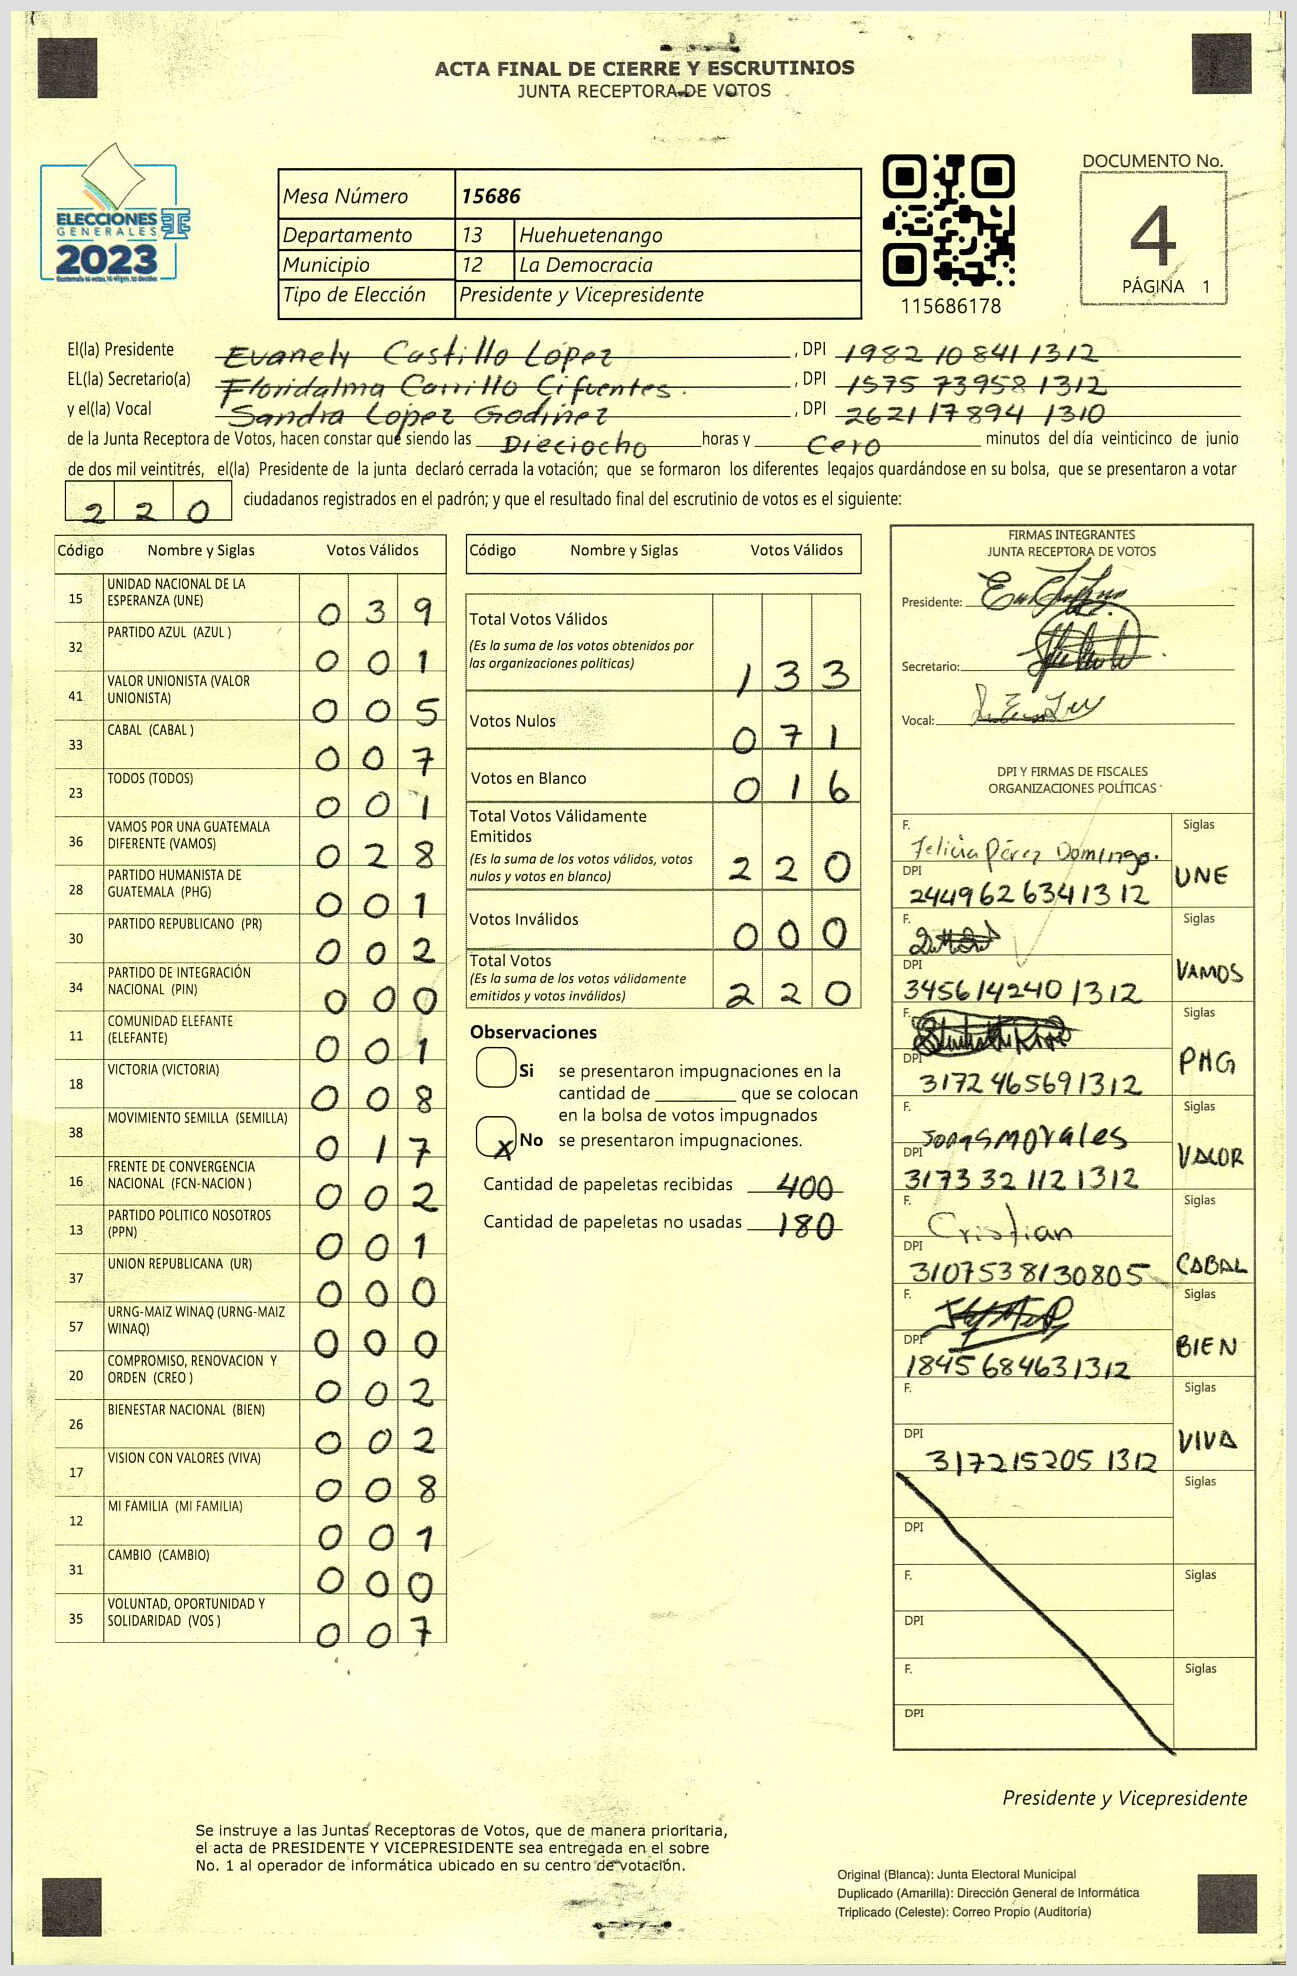 ACTA FINAL DE CIERRE Y ESCRUTINIOS
JUNTA RECEPTORA DE VOTOS
ELECCIONES
GENERALES
2023
Mesa Número 15686
Departamento 13 Huehuetenango
Municipio 12 La Democracia
Tipo de Elección Presidente y Vicepresidente
115686178
DOCUMENTO No.
4
PÁGINA 1
El(la) Presidente Evanely Castillo López , DPI 1982 10841 1312
EL(la) Secretario(a) Floridalma Carrillo Cifuentes. , DPI 1575 73958 1312
y el(la) Vocal Sandra López Godínez , DPI 2621 17894 1310
de la Junta Receptora de Votos, hacen constar que siendo las Dieciocho horas y Cero minutos del día veinticinco de junio
de dos mil veintitrés, el(la) Presidente de la junta declaró cerrada la votación; que se formaron los diferentes legajos guardándose en su bolsa, que se presentaron a votar
220 ciudadanos registrados en el padrón; y que el resultado final del escrutinio de votos es el siguiente:
Código Nombre y Siglas Votos Válidos
15 UNIDAD NACIONAL DE LA ESPERANZA (UNE) 039
32 PARTIDO AZUL (AZUL ) 001
41 VALOR UNIONISTA (VALOR UNIONISTA) 005
33 CABAL (CABAL ) 007
23 TODOS (TODOS) 001
36 VAMOS POR UNA GUATEMALA DIFERENTE (VAMOS) 028
28 PARTIDO HUMANISTA DE GUATEMALA (PHG) 001
30 PARTIDO REPUBLICANO (PR) 002
34 PARTIDO DE INTEGRACIÓN NACIONAL (PIN) 000
11 COMUNIDAD ELEFANTE (ELEFANTE) 001
18 VICTORIA (VICTORIA) 008
38 MOVIMIENTO SEMILLA (SEMILLA) 017
16 FRENTE DE CONVERGENCIA NACIONAL (FCN-NACION ) 002
13 PARTIDO POLITICO NOSOTROS (PPN) 001
37 UNION REPUBLICANA (UR) 000
57 URNG-MAIZ WINAQ (URNG-MAIZ WINAQ) 000
20 COMPROMISO, RENOVACION Y ORDEN (CREO ) 002
26 BIENESTAR NACIONAL (BIEN) 002
17 VISION CON VALORES (VIVA) 008
12 MI FAMILIA (MI FAMILIA) 001
31 CAMBIO (CAMBIO) 000
35 VOLUNTAD, OPORTUNIDAD Y SOLIDARIDAD (VOS ) 007
Código Nombre y Siglas Votos Válidos
Total Votos Válidos
(Es la suma de los votos obtenidos por
las organizaciones políticas) 133
Votos Nulos 071
Votos en Blanco 016
Total Votos Válidamente
Emitidos
(Es la suma de los votos válidos, votos
nulos y votos en blanco) 220
Votos Inválidos 000
Total Votos
(Es la suma de los votos válidamente
emitidos y votos inválidos) 220
Observaciones
Si se presentaron impugnaciones en la
cantidad de ________ que se colocan
en la bolsa de votos impugnados
X No se presentaron impugnaciones.
Cantidad de papeletas recibidas 400
Cantidad de papeletas no usadas 180
FIRMAS INTEGRANTES
JUNTA RECEPTORA DE VOTOS
Presidente:
Secretario:
Vocal:
DPI Y FIRMAS DE FISCALES
ORGANIZACIONES POLÍTICAS
F. Felicia Pérez Domingo. Siglas
DPI 2449626341312 UNE
F. Siglas
DPI 3456142401312 VAMOS
F. Siglas
DPI 3172465691312 PHG
F. Jonas morales Siglas
DPI 3173 32 112 1312 VALOR
F. Cristian Siglas
DPI 3107538130805 CABAL
F. Siglas
DPI 1845684631312 BIEN
F. Siglas
DPI 3172152051312 VIVA
Siglas
DPI
F. Siglas
DPI
F. Siglas
DPI
Presidente y Vicepresidente
Se instruye a las Juntas Receptoras de Votos, que de manera prioritaria,
el acta de PRESIDENTE Y VICEPRESIDENTE sea entregada en el sobre
No. 1 al operador de informática ubicado en su centro de votación.
Original (Blanca): Junta Electoral Municipal
Duplicado (Amarilla): Dirección General de Informática
Triplicado (Celeste): Correo Propio (Auditoría)